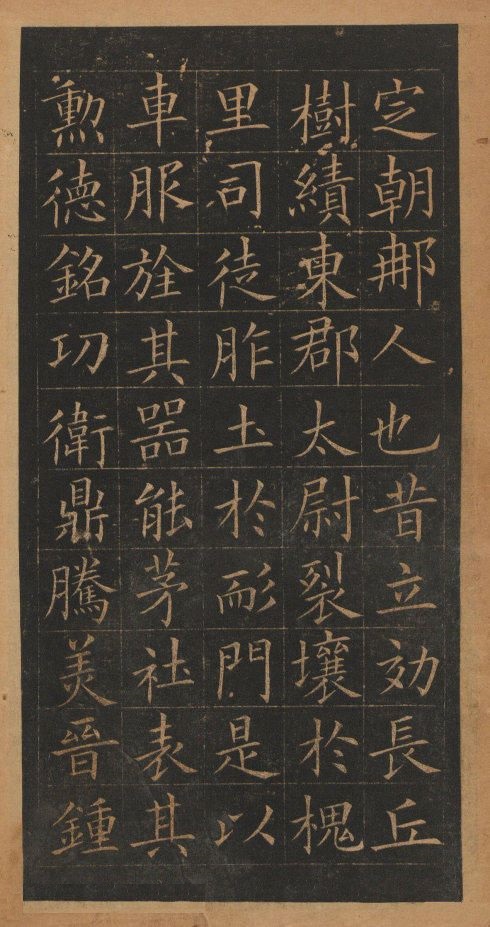 㝎朝𨙻人也昔立効長丘
樹績東郡太尉裂壤於槐
里司徒胙土於耏門是以
車服旌其器能茅社表其
勲德銘功衛鼎騰美晉鍾